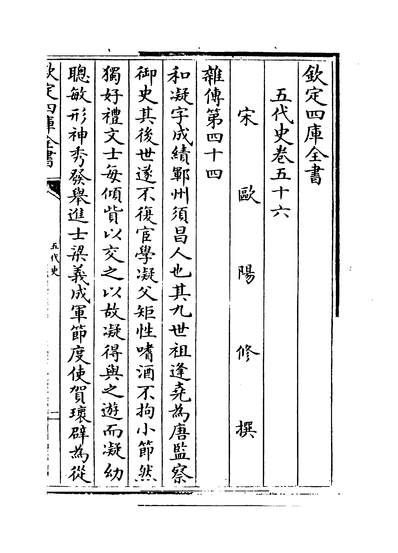 欽定四庫全書
五代史卷五十六
宋歐陽修撰
雜傳第四十四
和凝字成績鄆州須昌人也其九世祖逢堯為唐監察
御史其後世遂不復宦學凝父矩性嗜酒不拘小節然
獨好禮文士每傾貲以交之以故凝得與之遊而凝幼
聰敏形神秀發舉進士梁義成軍節度使賀瓌辟為從
欽定四庫全書
五代史
一